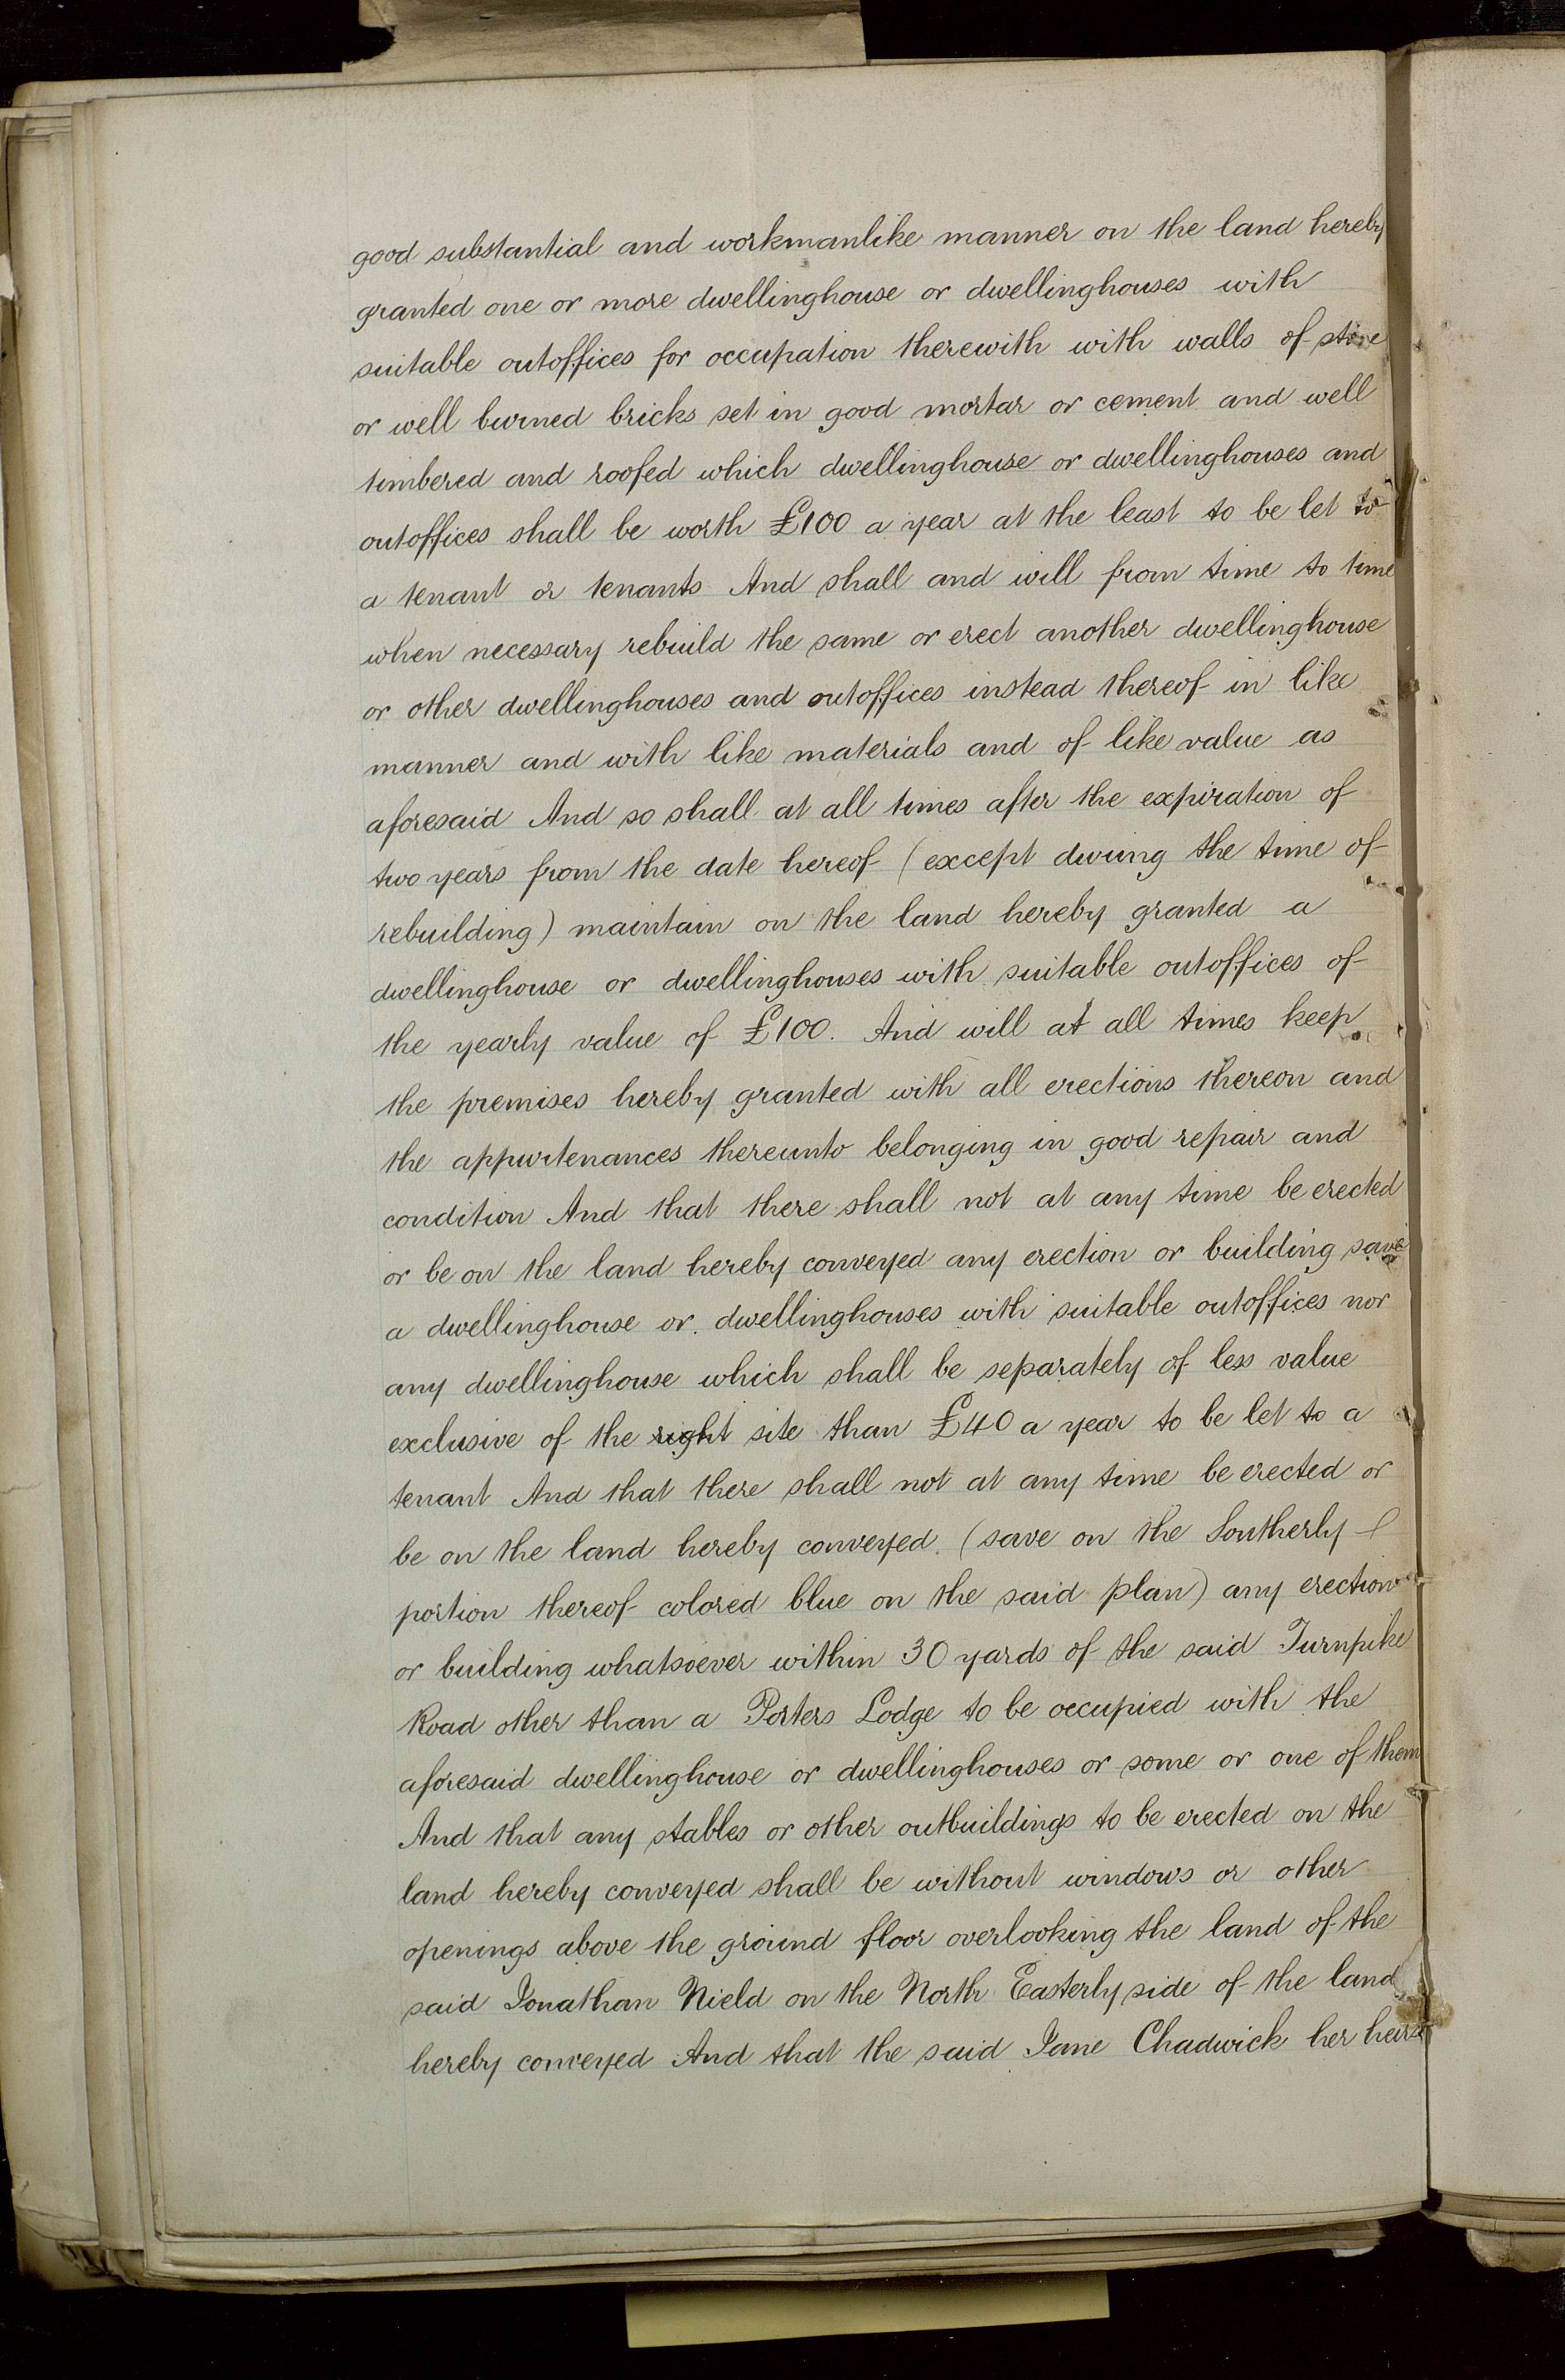 good substantial and workmanlike manner on the land hereby
granted one or more dwellinghouse or dwellinghouses with
suitable outoffices for occupation therewith with walls of stone
or well burned bricks set in good mortar or cement and well
timbered and roofed which dwellinghouse or dwellinghouses and
outoffices shall be worth £100 a year at the least to be let to
a tenant or tenants And shall and will from time to time
when necessary rebuild the same or erect another dwellinghouse
or other dwellinghouses and outoffices instead thereof in like
manner and with like materials and of like value as
aforesaid And so shall at all times after the expiration of
two years from the date hereof (except during the time of
rebuilding) maintain on the land hereby granted a
dwellinghouse or dwellinghouses with suitable outoffices of
the yearly value of £100. And will at all times keep
the premises hereby granted with all erections thereon and
the appurtenances thereunto belonging in good repair and
condition And that there shall not at any time be erected
or be on the land hereby conveyed any erection or building save
a dwellinghouse or dwellinghouses with suitable outoffices nor
any dwellinghouse which shall be separately of less value
exclusive of the right site than £40 a year to be let to a
tenant And that there shall not at any time be erected or
be on the land hereby conveyed (save on the Southerly
portion thereof colored blue on the said plan) any erection
or building whatsoever within 30 yards of the said Turnpike
Road other than a Porters Lodge to be occupied with the
aforesaid dwellinghouse or dwellinghouses or some or one of them
And that any stables or other outbuildings to be erected on the
land hereby conveyed shall be without windows or other
openings above the ground floor overlooking the land of the
said Jonathan Nield on the North Easterly side of the land
hereby conveyed And that the said Jane Chadwick her heirs